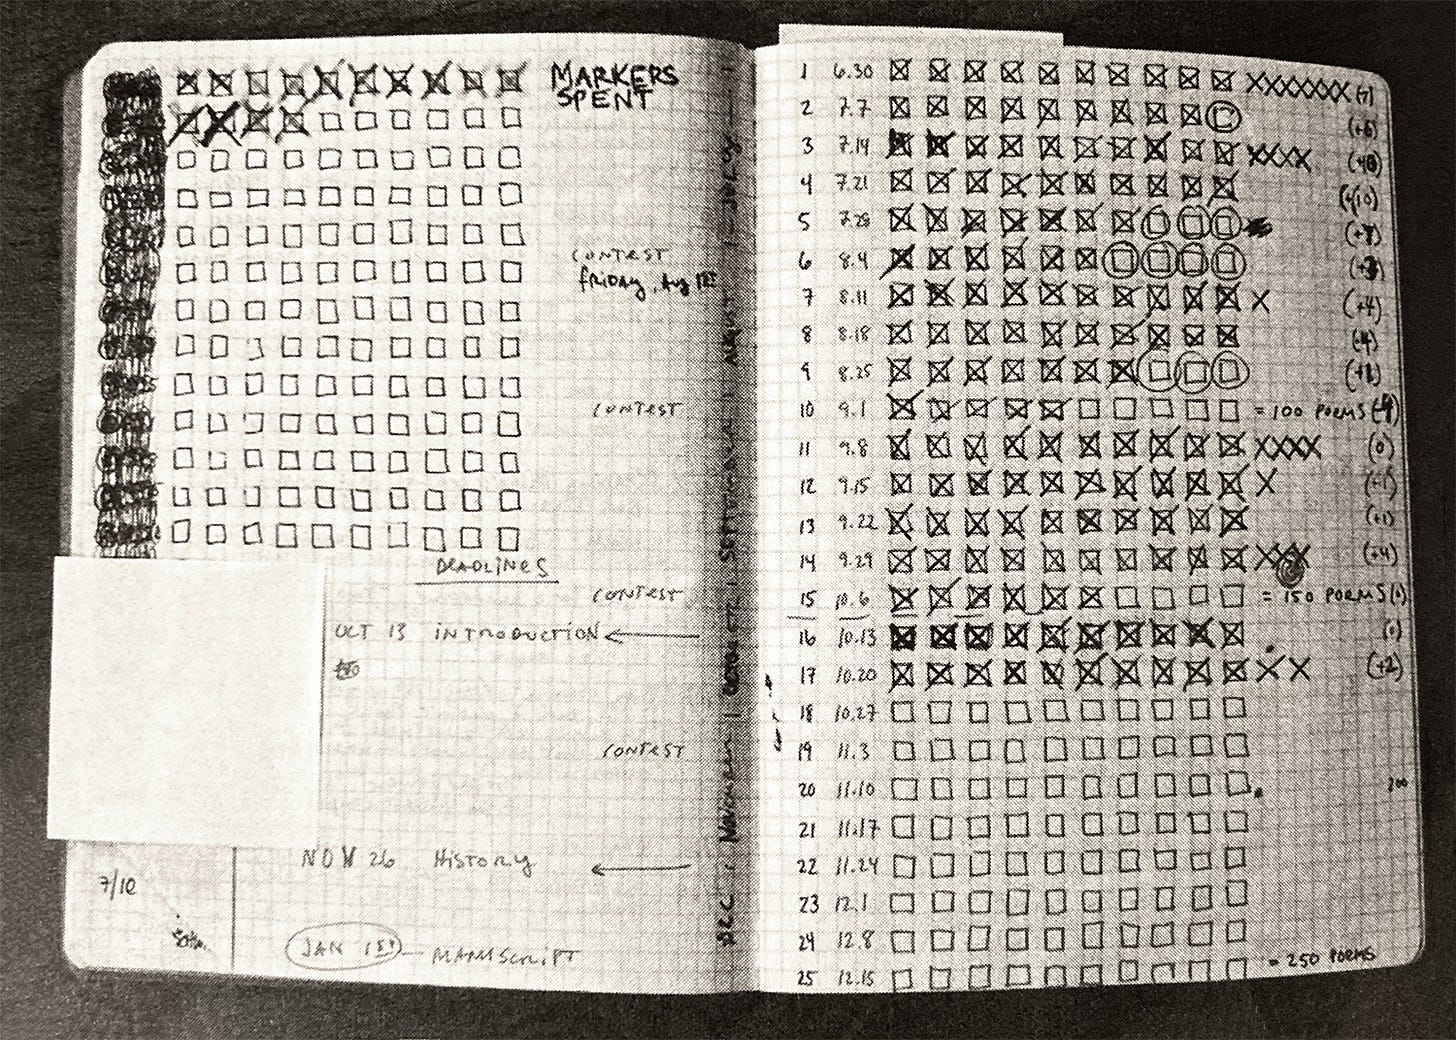 MARKERS
SPENT
CONTEST
FRIDAY, Aug 1ST
CONTEST
DEADLINES
CONTEST
OCT 13 INTRODUCTION
CONTEST
NOV 26 HISTORY
7/10
JAN 1ST — MANUSCRIPT
DEC | NOVEMBER | OCTOBER | SEPTEMBER | AUGUST | JULY
1 6.30 XXXXXXX
2 7.7 (+6)
3 7.14 XXXX (+10)
4 7.21 (+10)
5 7.28 (+7)
6 8.4 (+3)
7 8.11 X (+4)
8 8.18 (+4)
9 8.25 (+1)
10 9.1 = 100 POEMS (-4)
11 9.8 XXXX (0)
12 9.15 X (+1)
13 9.22 (+1)
14 9.29 XXX (+4)
15 10.6 = 150 POEMS (0)
16 10.13 (0)
17 10.20 XX (+2)
18 10.27
19 11.3
20 11.10 200
21 11.17
22 11.24
23 12.1
24 12.8
25 12.15 = 250 POEMS